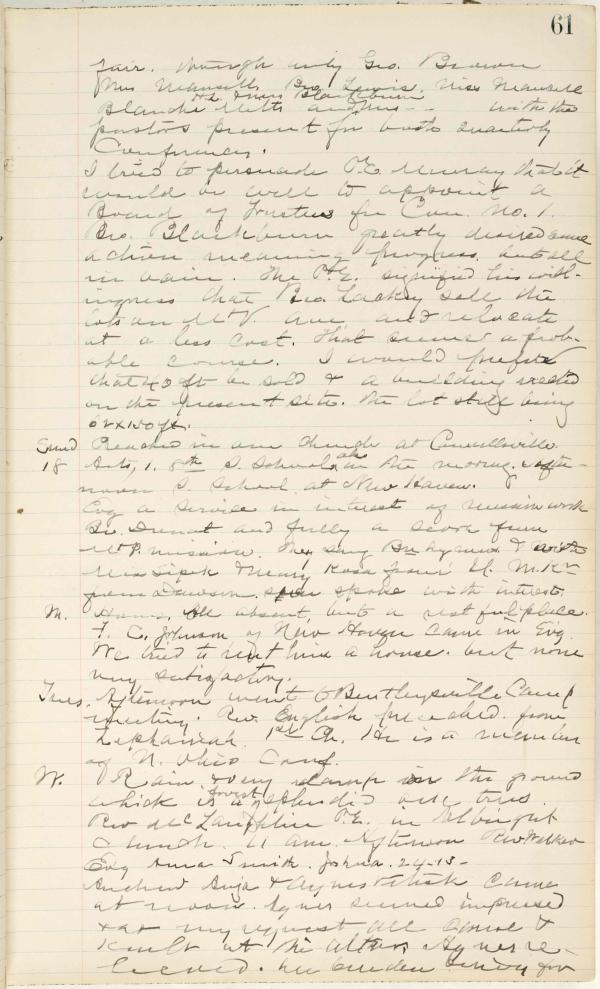 61
fair. though only Geo. Brown
Mrs Mansell, Bro. Lewis, Miss Mansell
and Anna Blackburn
Blanche Metts and Mrs -- with the
pastors present for both Quarterly
Conferences.
I tried to persuade P.E. Murray that it
would be well to appoint a
Board of Trustees for Con. No. 1.
Bro. Blackburn greatly desired some
action meaning progress, but all
in vain. The P.E. signified his will-
ingness that Bro. Lackey sell the
lots on Mt V. Ave and relocate
at a less cost. That seems a prob-
able course. I would prefer
that 40 ft be sold & a building erected
on the present site. The lot still being
60x150 ft.
Sund Preached in our church at Connellsville
18 Acts, 1. 8th S. School also in the morning. After-
noon S. School at New Haven.
Evg a service in interest of mission work
Sr. and fully a score from
Mt P. mission. They sang hymns &
Miss and Mary Rosa from M. K.
from Dawson spoke with interest.
M. Home. All absent, but a restful place.
F. C. Johnson of New Haven came in Evg
We tried to rent him a house. but none
very satisfactory.
Tues. Afternoon went to Bentleysville Camp
meeting. Rev. English preached from
Zephaniah 1st Ch. He is a member
of N. Ohio Conf.
W. Rain & very damp on the ground
which is a splendid forest oak trees.
Rev McLaughlin P.E. in Albright
Church. 11 am. Afternoon Rev Walker
Evg Anna Smith. Joshua. 24-15-
Andrew & Agnes came
at noon. Agnes seemed impressed
& at my request all came &
knelt at the altar. Agnes re-
ceived. her burden for